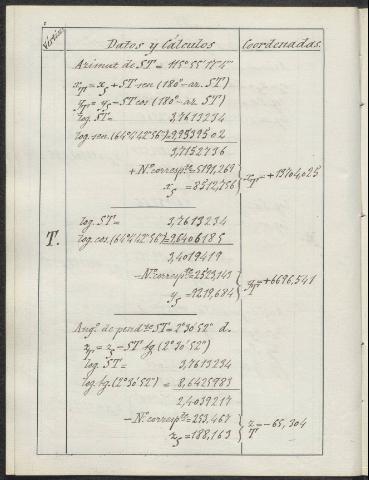 Vértices Datos y Cálculos Coordenadas.
Azimut de ST = 115°55'17"4
x_T = x_S + ST sen (180° - az. ST)
y_T = y_S - ST cos (180° - az. ST)
log. ST = 3,7613234
log. sen. (64°4'42"56) = 9,9539502
3,7152736
+ N.º corresp.te = 5191,269
x_S = 8512,756
x_T = +13704,025
T.
log. ST = 3,7613234
log. cos. (64°4'42"56) = 9,6406185
3,4019419
- N.º corresp.te = 2523,143
y_S = 9219,684
y_T = +6696,541
Ang.º de pend.te ST = 2°30'52" d.
z_T = z_S - ST tg. (2°30'52")
log. ST = 3,7613234
log. tg. (2°30'52") = 8,6425983
2,4039217
- N.º corresp.te = 253,467
z_S = 188,163
z_T = - 65,304